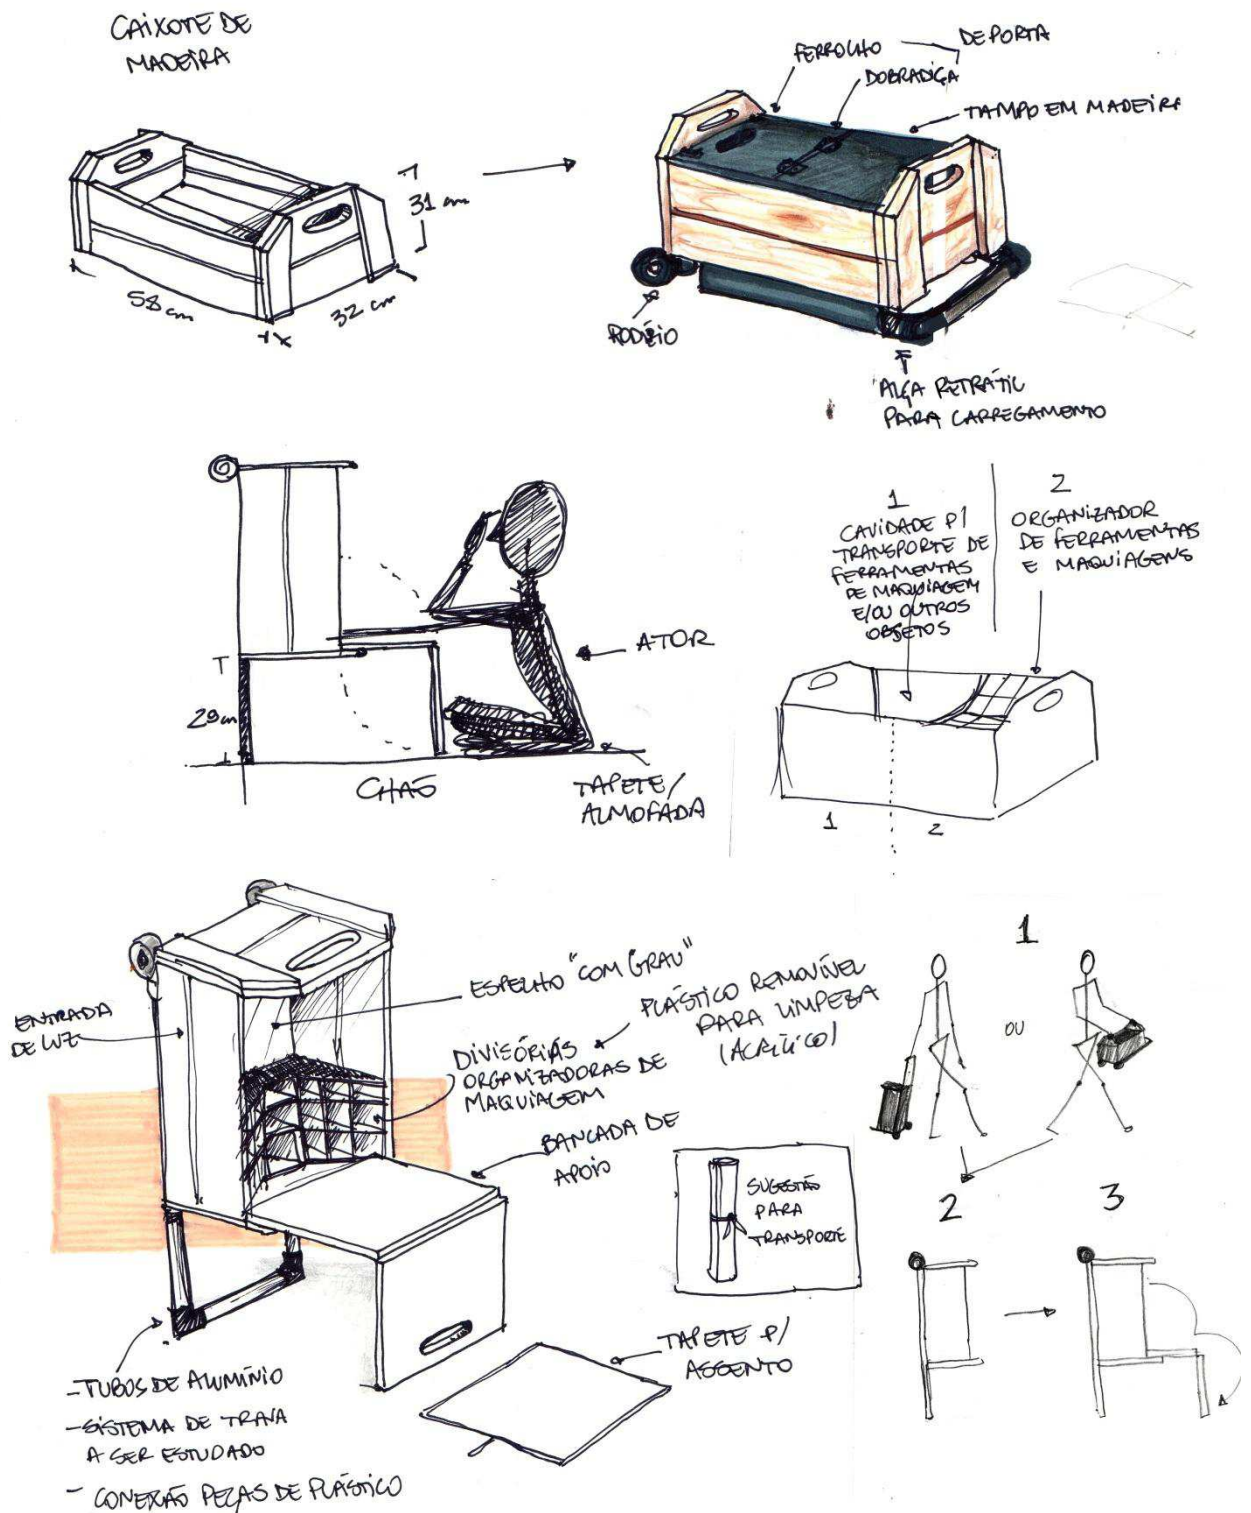 CAIXOTE DE
MADEIRA
58 cm
32 cm
31 cm
FERROLHO
DE PORTA
DOBRADIÇA
TAMPO EM MADEIRA
RODÍZIO
ALÇA RETRÁTIL
PARA CARREGAMENTO
29 cm
ATOR
CHÃO
TAPETE/
ALMOFADA
1
CAVIDADE P/
TRANSPORTE DE
FERRAMENTAS
DE MAQUIAGEM
E/OU OUTROS
OBJETOS
2
ORGANIZADOR
DE FERRAMENTAS
E MAQUIAGENS
1
2
ENTRADA
DE LUZ
ESPELHO "COM GRAU"
DIVISÓRIAS
ORGANIZADORAS DE
MAQUIAGEM
PLÁSTICO REMOVÍVEL
PARA LIMPEZA
(ACRÍLICO)
BANCADA DE
APOIO
SUGESTÃO
PARA
TRANSPORTE
TAPETE P/
ASSENTO
- TUBOS DE ALUMÍNIO
- SISTEMA DE TRAVA
A SER ESTUDADO
- CONEXÃO PEÇAS DE PLÁSTICO
1
OU
2
3